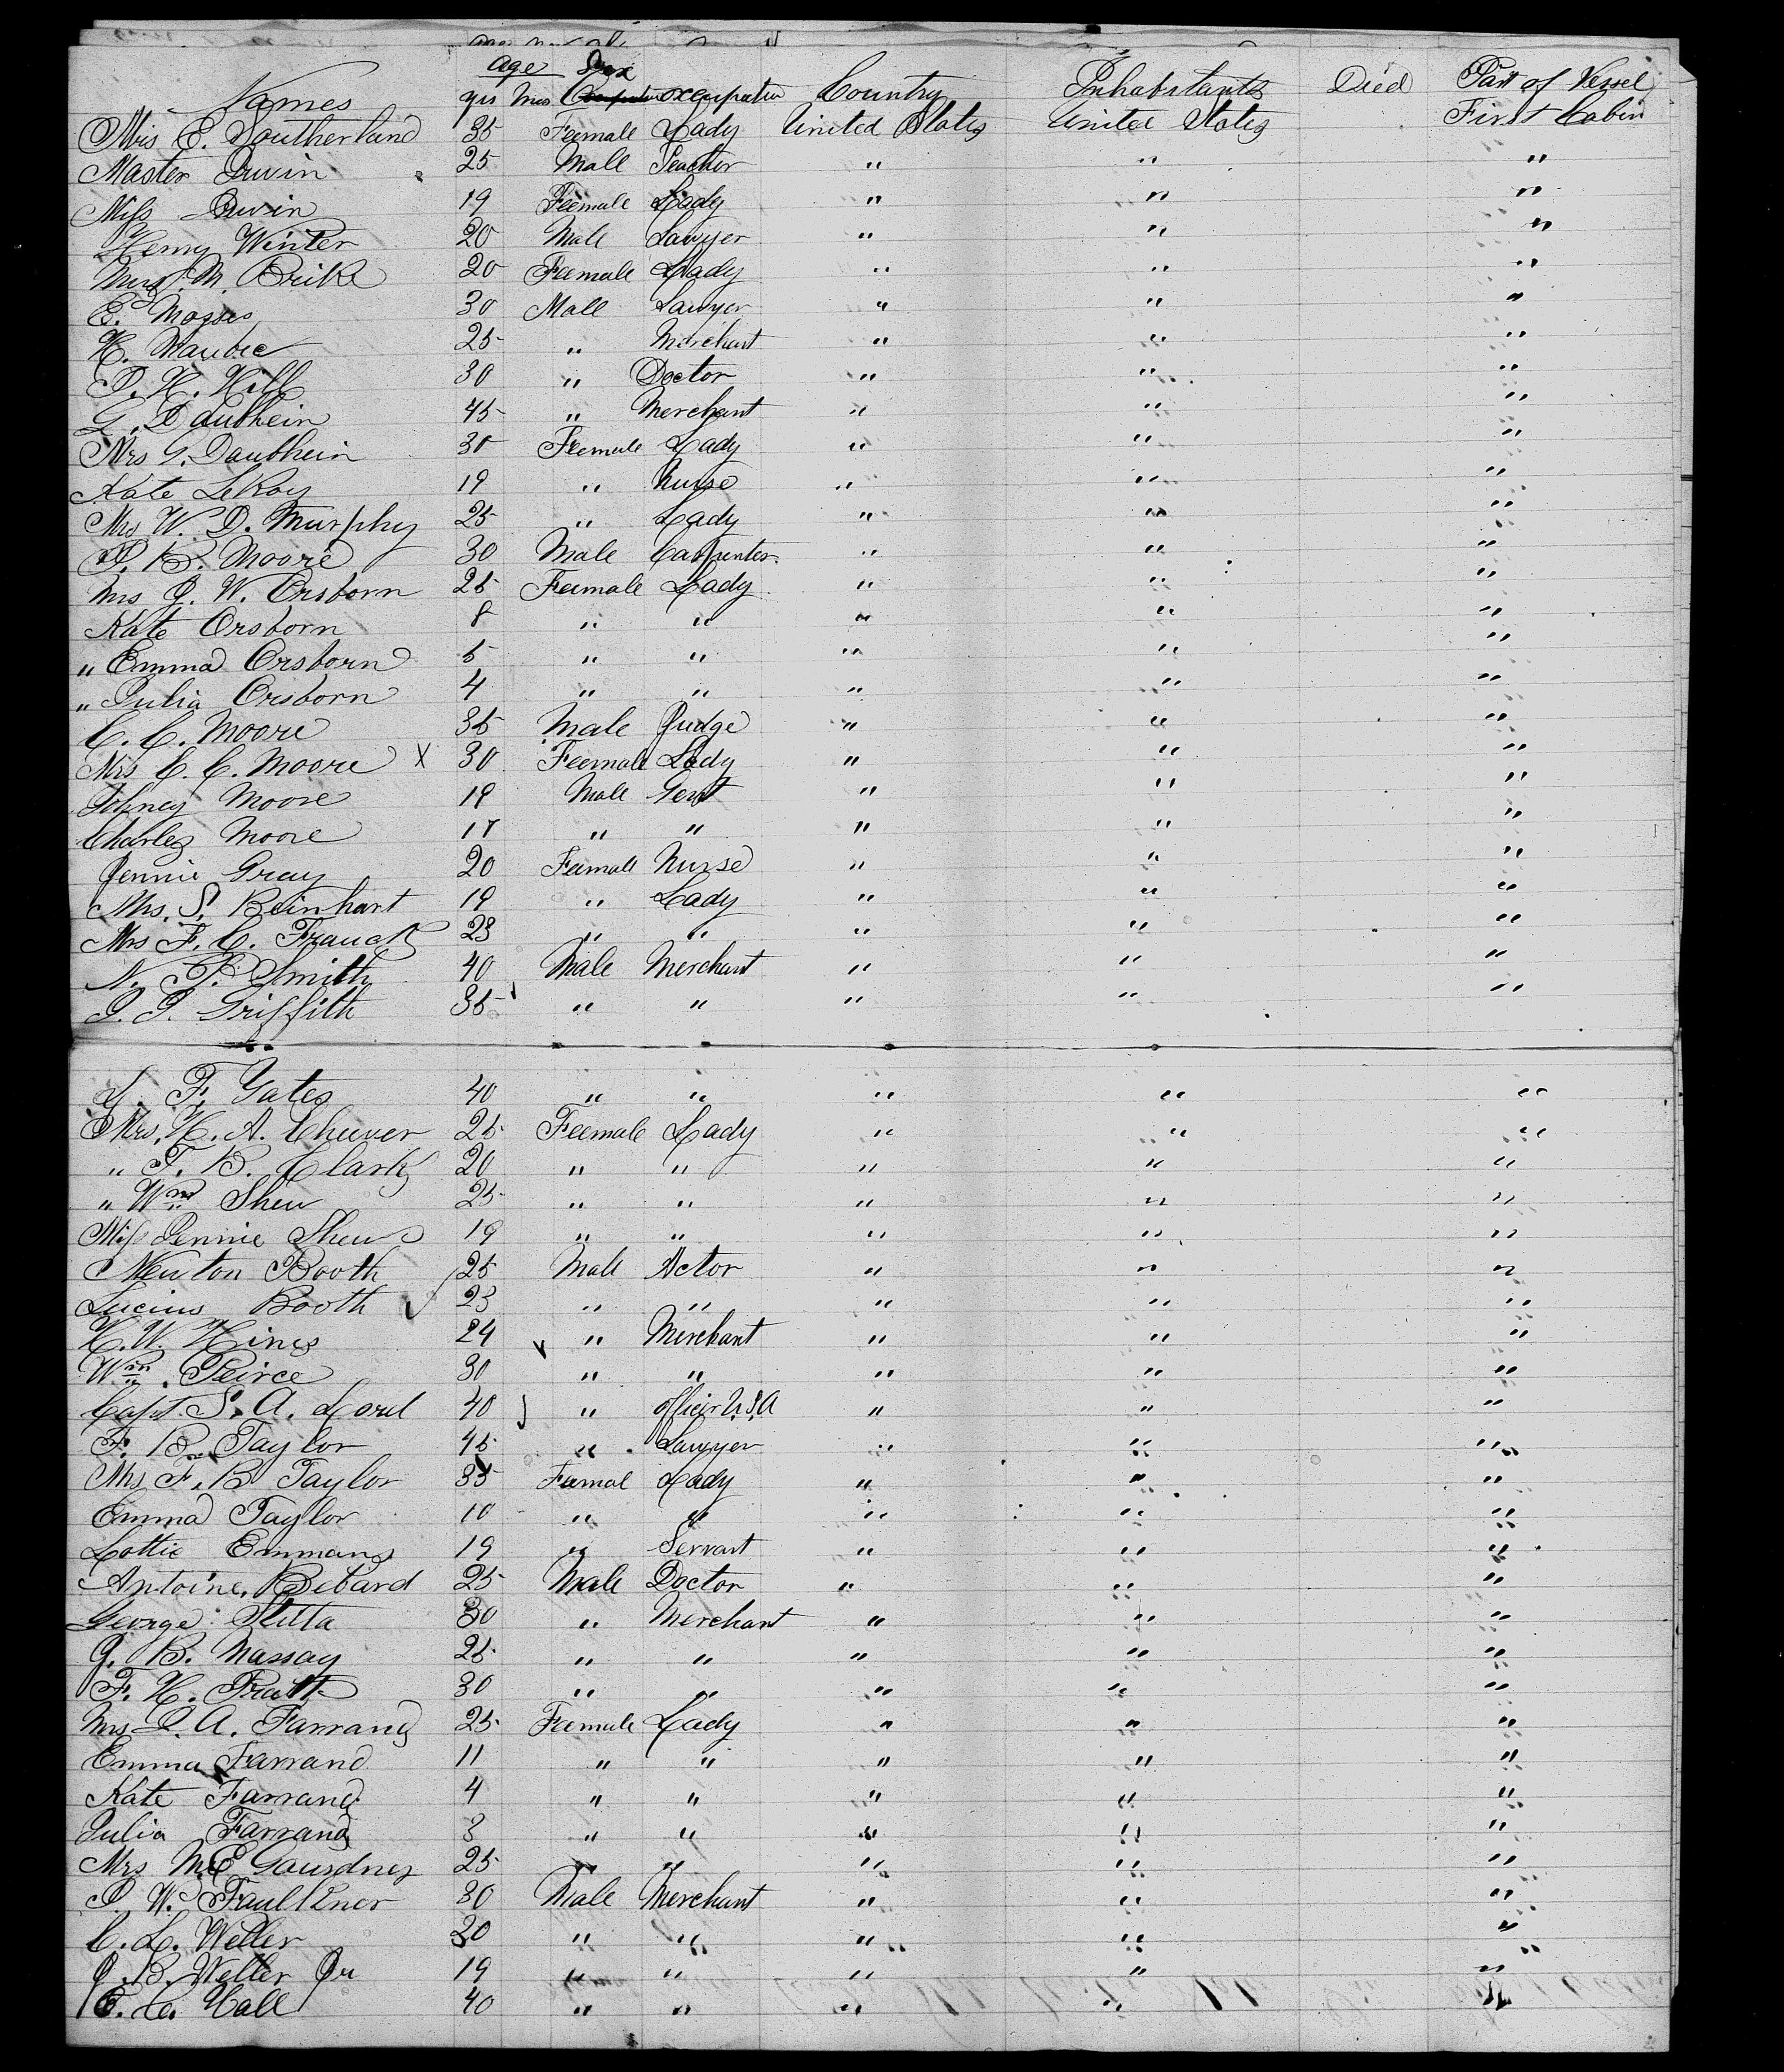 age Sex
Names yrs mos Occupation occupation Country Inhabitants Died Part of Vessel
Mrs E. Southerland 35 Feemale Lady United States United States First Cabin
Master Irwin 25 Male Teacher " " "
Miss Irwin 19 Feemale Lady " " "
Henry Winter 20 Male Lawyer " " "
Mrs. M. Brike 20 Feemale Lady " " "
E. Mosses 30 Male Lawyer " " "
H. Maubec 25 " Merchant " " "
P. H. Hill 30 " Doctor " " "
G. Daubhein 45 " Merchant " " "
Mrs G. Daubhein 30 Feemale Lady " " "
Kate LeRoy 19 " Nurse " " "
Mrs W. D. Murphy 25 " Lady " " "
P. B. Moore 30 Male Carpenter " " "
Mrs J. W. Orsborn 25 Feemale Lady " " "
Kate Orsborn 8 " " " " "
" Emma Orsborn 5 " " " " "
" Julia Orsborn 4 " " " " "
C. C. Moore 35 Male Judge " " "
Mrs C. C. Moore X 30 Feemale Lady " " "
Johney Moore 19 Male Gent " " "
Charles Moore 17 " " " " "
Jennie Gray 20 Feemale Nurse " " "
Mrs. S. Reinhart 19 " Lady " " "
Mrs F. C. Franck 23 " " " " "
N. P. Smith 40 Male Merchant " " "
J. J. Griffith 35 " " " " "
L. F. Yates 40 " " " " "
Mrs. H. A. Cheever 25 Feemale Lady " " "
" F. B. Clark 20 " " " " "
" Wm Shew 25 " " " " "
Miss Jennie Shew 19 " " " " "
Newton Booth 25 Male Actor " " "
Lucius Booth 23 " " " " "
H. W. Hines 24 " Merchant " " "
Wm. Peirce 30 " " " " "
Capt. S. A. Lord 40 " officer U.S.A " " "
F. B. Taylor 45 " Lawyer " " "
Mrs F. B Taylor 35 Feemal Lady " " "
Emma Taylor 10 " " " " "
Lottie Emmans 19 " Servant " " "
Antoine Bebard 25 Male Doctor " " "
George Stitta 30 " Merchant " " "
J. B. Massay 25 " " " " "
F. H. Pratt 30 " " " " "
Mrs L. A. Farrand 25 Feemale Lady " " "
Emma Farrand 11 " " " " "
Kate Farrand 4 " " " " "
Julia Farrand 3 " " " " "
Mrs M. E Gaurdney 25 " " " " "
P. W. Faulkner 30 Male Merchant " " "
C. L. Weller 20 " " " " "
J. B. Weller Jr 19 " " " " "
E. C. Hall 40 " " " " "